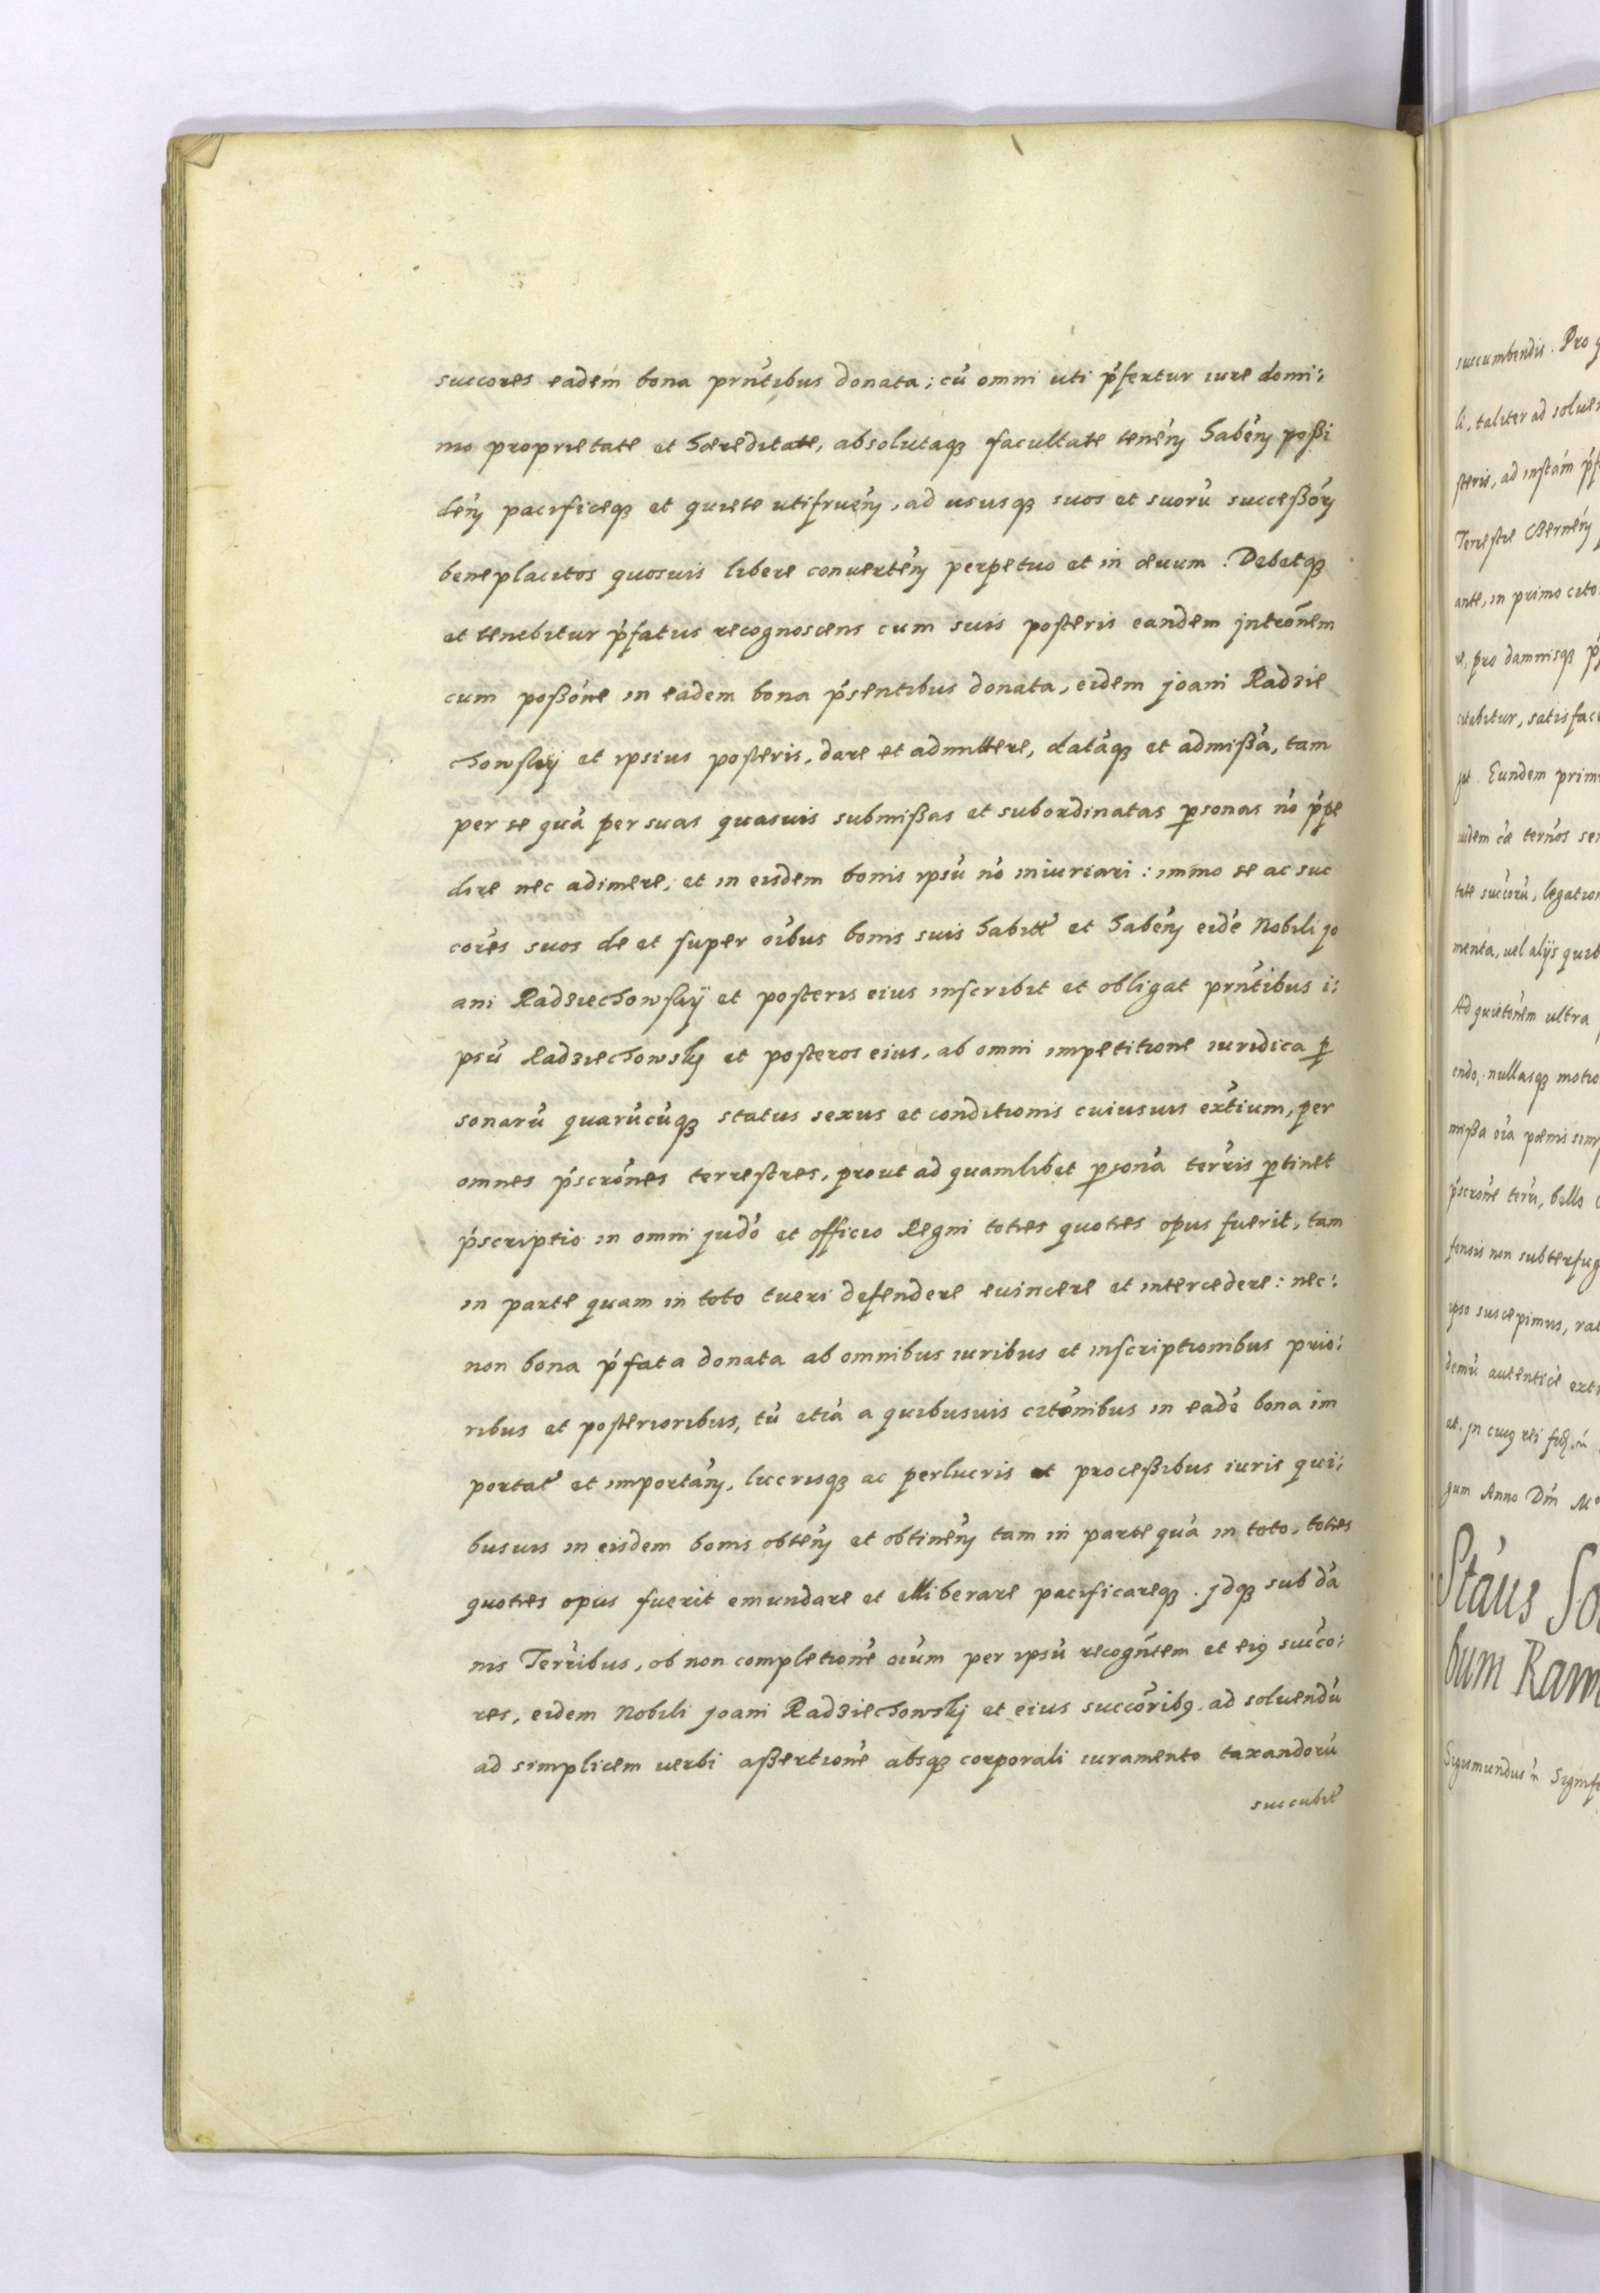 succores eadem bona prn̄tibus donata; cū omni uti p̄fertur iure domi:
nio proprietate et haereditate, absolutaq3 facultate tenen̄ haben̄ possi
den̄ pacificeq3 et quiete utifruen̄, ad ususq3 suos et suorū successor̄
beneplacitos quosuis libere conuerten̄ perpetuo et in aeuum. Debetq3
et tenebitur p̄fatus recognoscens cum suis posteris eandem jntrōnem
cum possōne in eadem bona p̄sentibus donata, eidem joani Radzie
chowskij et ipsius posteris, dare et admittere, datāq3 et admissā, tam
per se quā per suas quasuis submissas et subordinatas p̱sonas nō p̄pe
dire nec adimere, et in eisdem bonis ipsū nō iniuriari: immo se ac suc
cores suos de et super oībus bonis suis habit̄ et haben̄ eidē Nobili jo
ani Radziechowskij et posteris eius inscribit et obligat prn̄tibus i:
psū Radziechowskj et posteros eius, ab omni impetitione iuridica p̱
sonarū quarūcūq3 status sexus et conditionis cuiusuis ext̄ium, per
omnes p̄scrōnes terrestres, prout ad quamlibet p̱sonā terr̄is p̱tinet
p̄scriptio in omni judō et officio Regni toties quoties opus fuerit, tam
in parte quam in toto tueri defendere euincere et intercedere: nec:
non bona p̄fata donata ab omnibus iuribus et inscriptionibus prio:
ribus et posterioribus, tū etiā a quibusuis citōnibus in eadē bona im
portat̄ et importan̄, lucrisq3 ac perlucris et processibus iuris qui:
busuis in eisdem bonis obten̄ et obtinen̄ tam in parte quā in toto, toties
quoties opus fuerit emundare et elliberare pacificareq3. jdq3 sub dā
nis Terr̄ibus, ob non completionē oīum per ipsū recogn̄tem et eius succo:
res, eidem Nobili joani Radziechowskj et eius succōribus, ad soluendū
ad simplicem uerbi assertionē absq3 corporali iuramento taxandorū
succubit̄
succumbendis. Pro
li, taliter ad
steris, ad instām
Terrestre
ante, in primo
pro damnisq3
satisfac
Eundem
menta, uel alijs
Ad quietōnem ultra
endo, nullasq3
fensis non
ipso suscepimus,
gum Anno Dm̄
Stāus
bum Ram
Sigismundus